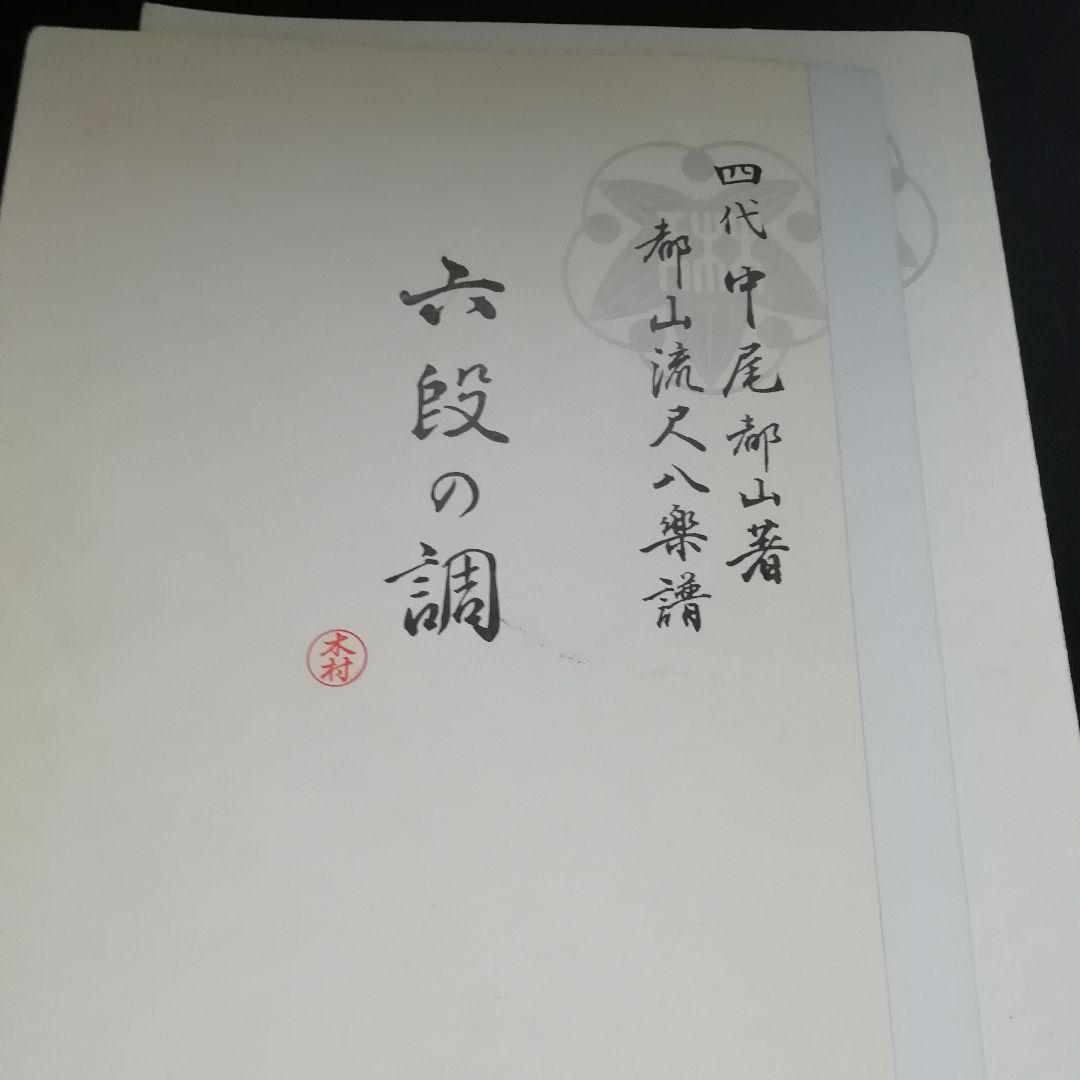 四代中尾都山著
都山流尺八楽譜
六段の調
木村